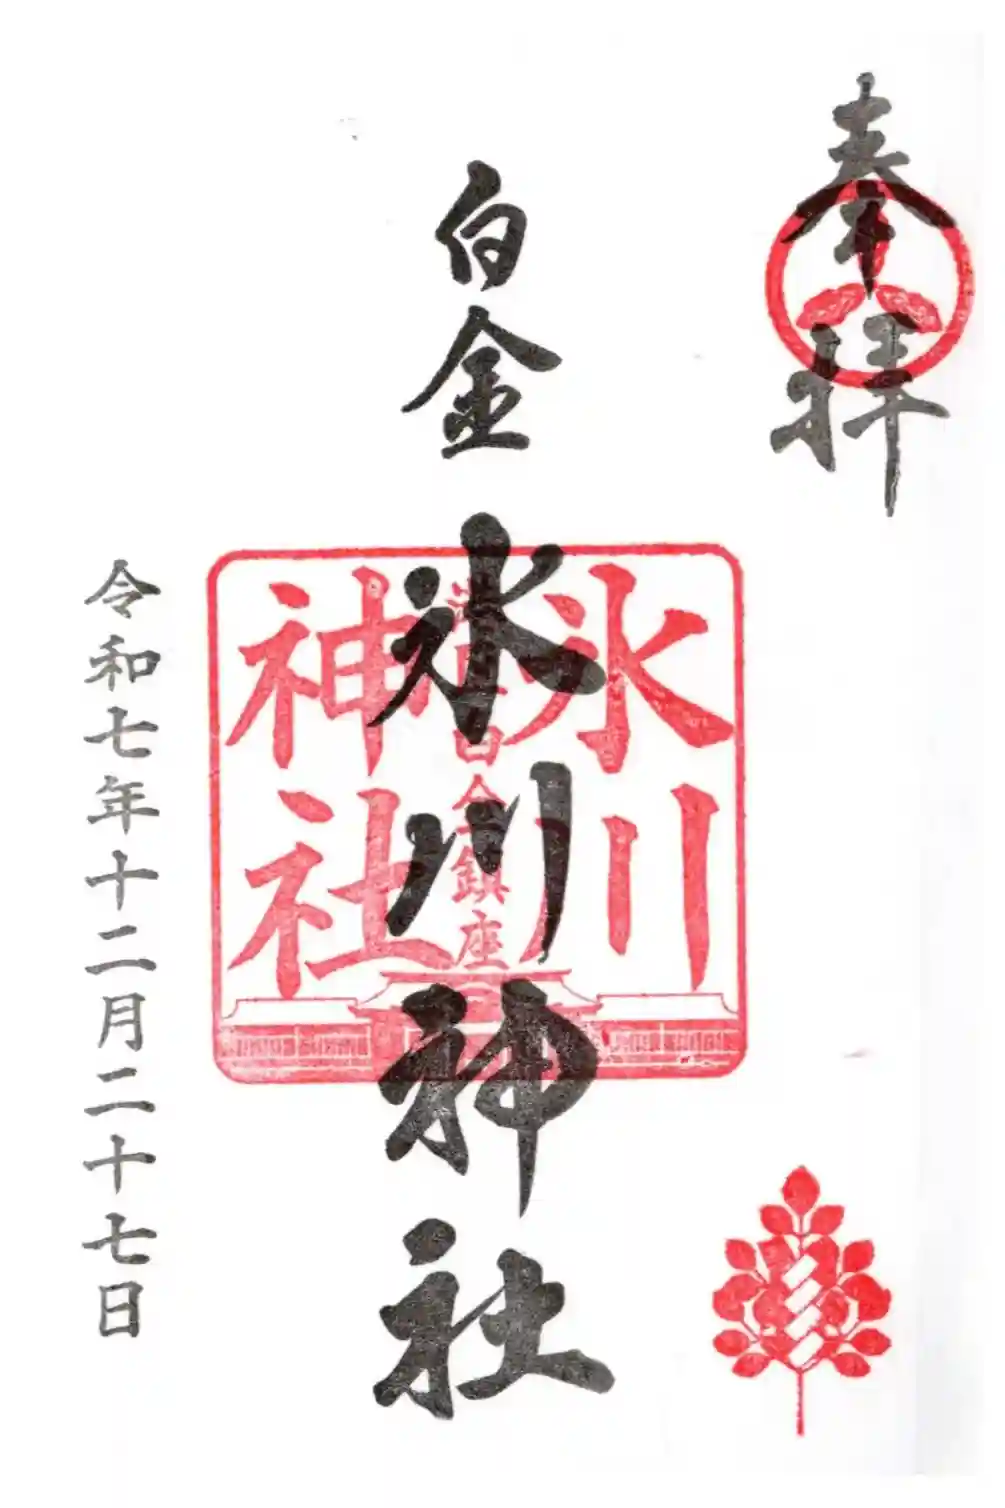 奉拝
白金
氷川神社
氷川
神社
白金鎮座
令和七年十二月二十七日